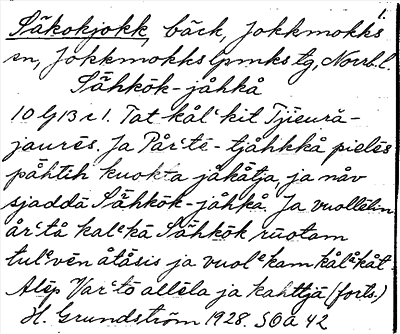 1.
Säkokjokk, bäck, Jokkmokks
sn, Jokkmokks lpmks tg, Norrb. l.
Sähkök-jåhkå
10 G 13 c 1. Tat kål'kit Tjieurå-
jaurēs. Ja Pår'tē-tjåhkkå pielēs
påhtih kuokta jåkåtja, ja nåv
sjaddå Sähkök-jåhkå. Ja vuollēlin
år'tå kalᵉkå Sähkök ruotam
tulᵉvēn åtåsis ja vuolᵉkam kålᵃkåt
Alēp Var'tō allēla ja kahttjå (forts.)
H. Grundström 1928. SOA 42